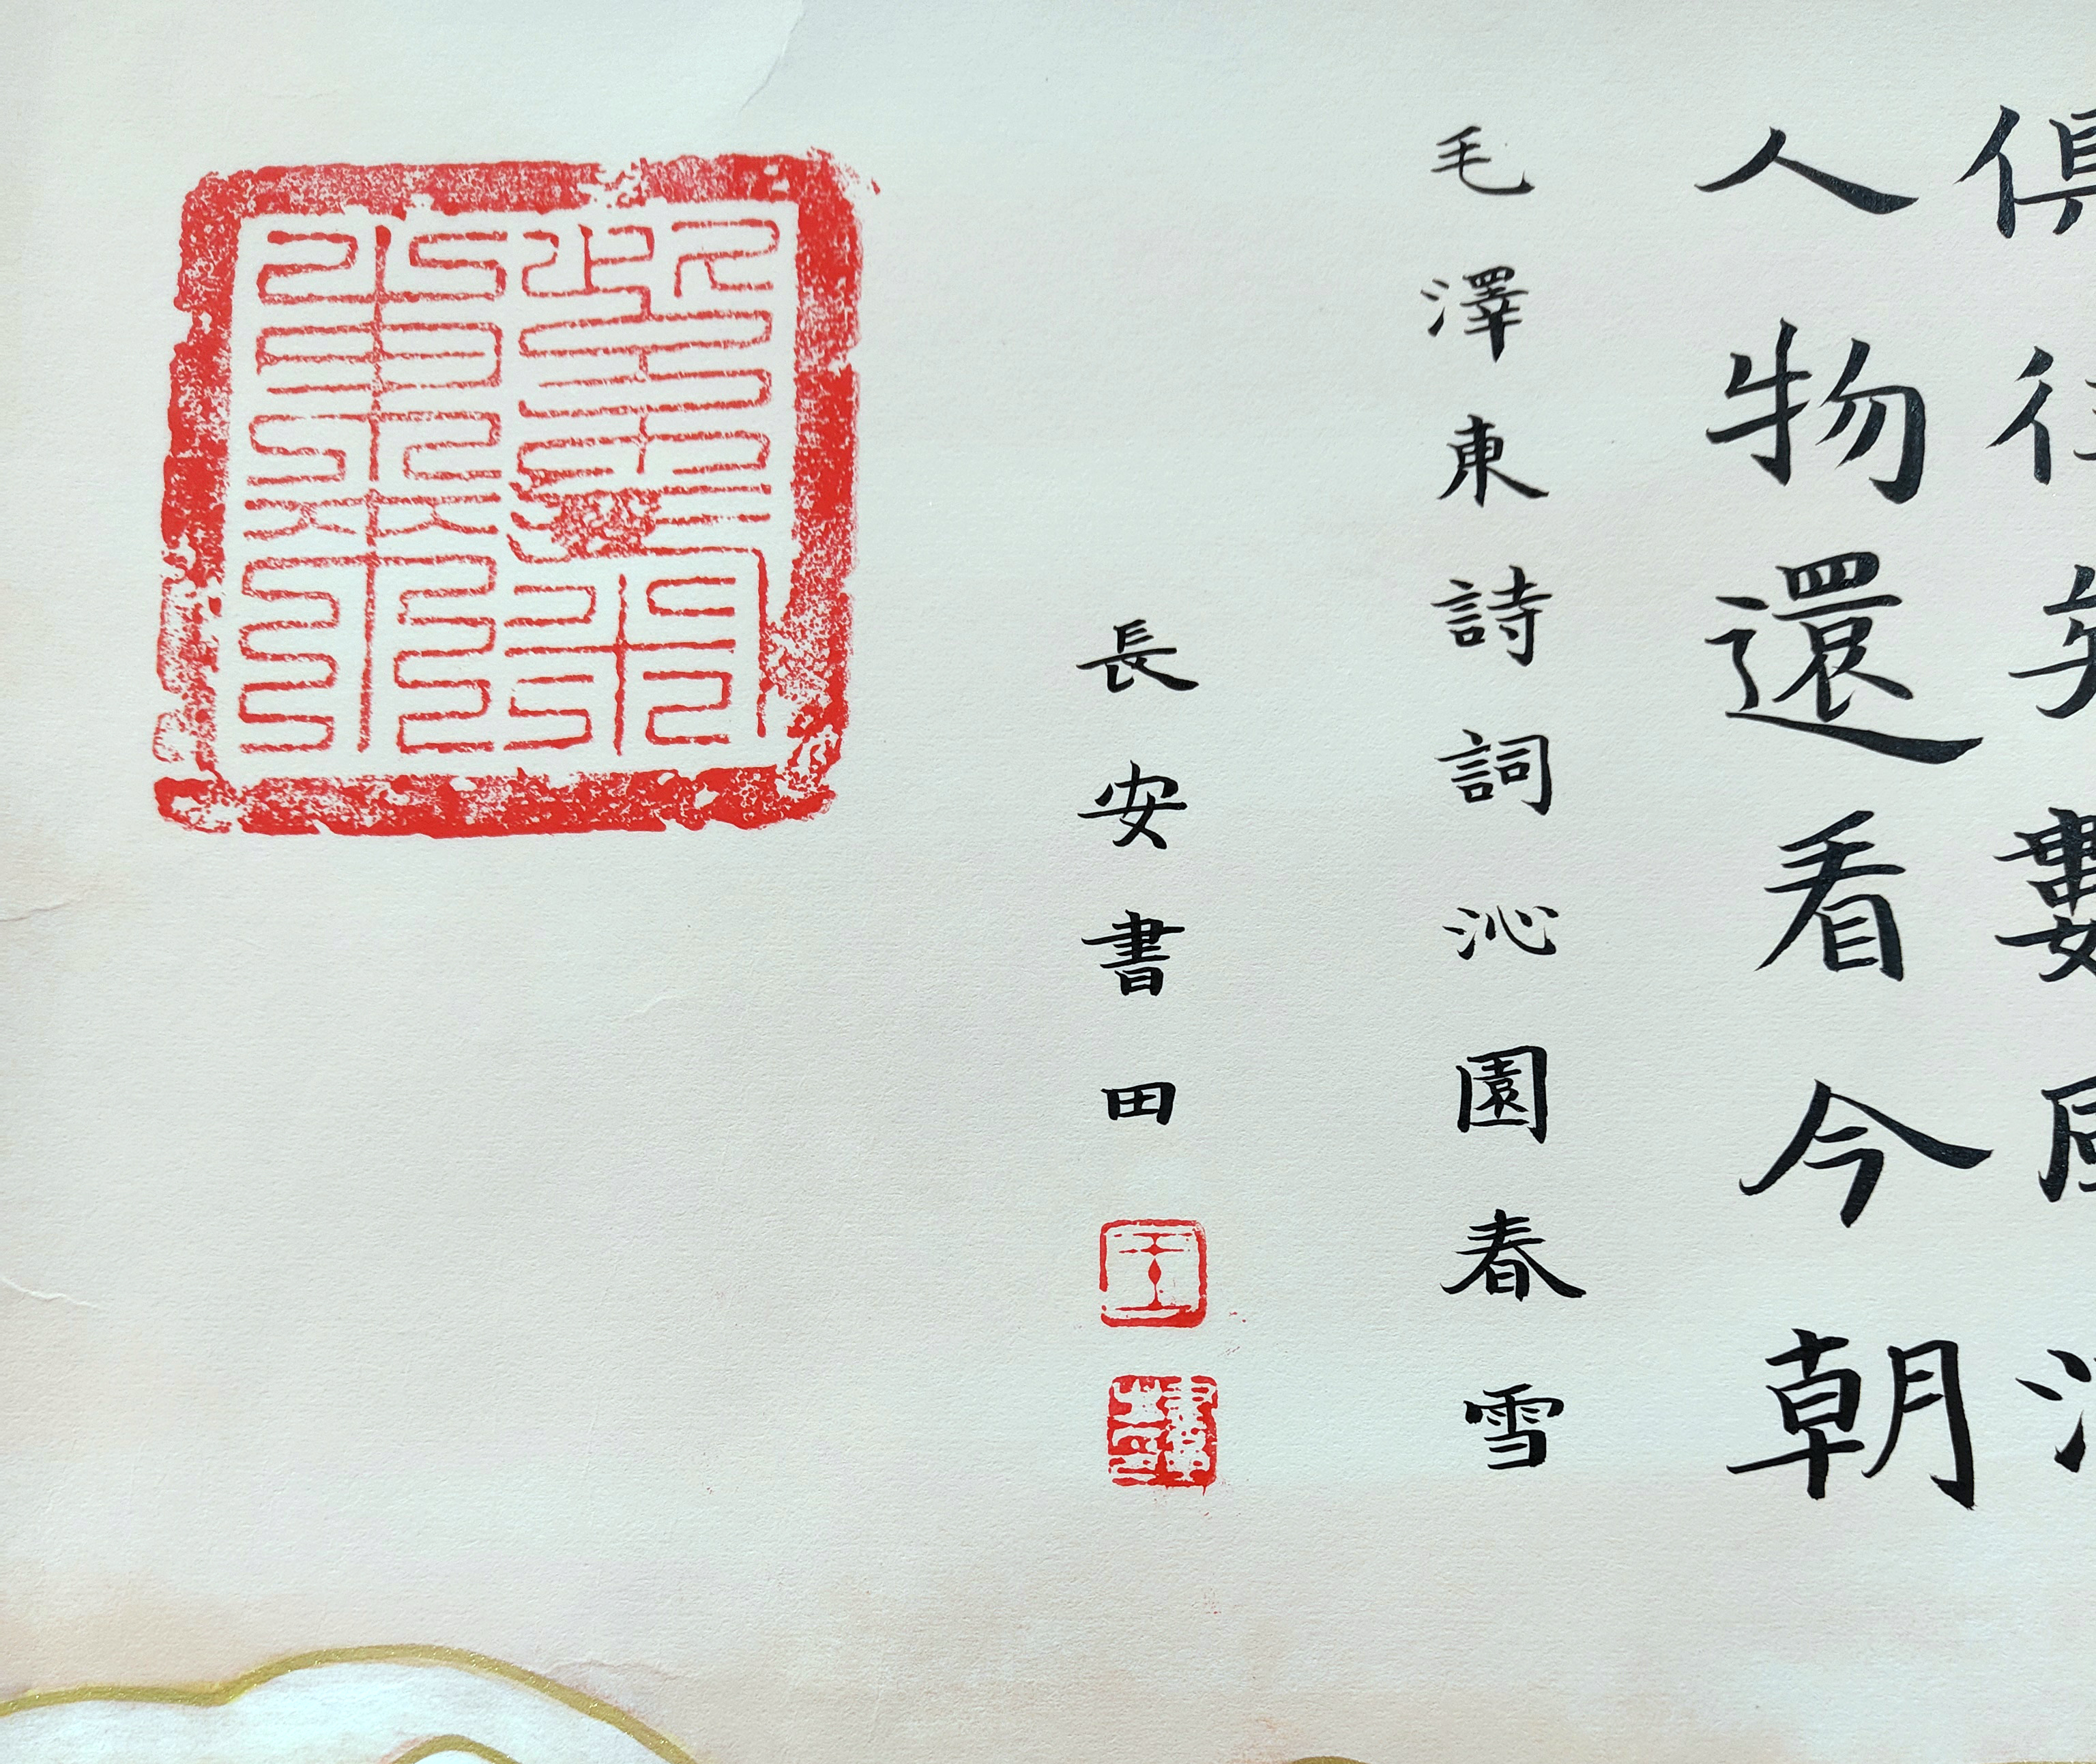 俱往矣數風流
人物還看今朝
毛澤東詩詞沁園春雪
長安書田
王
紫氣東來